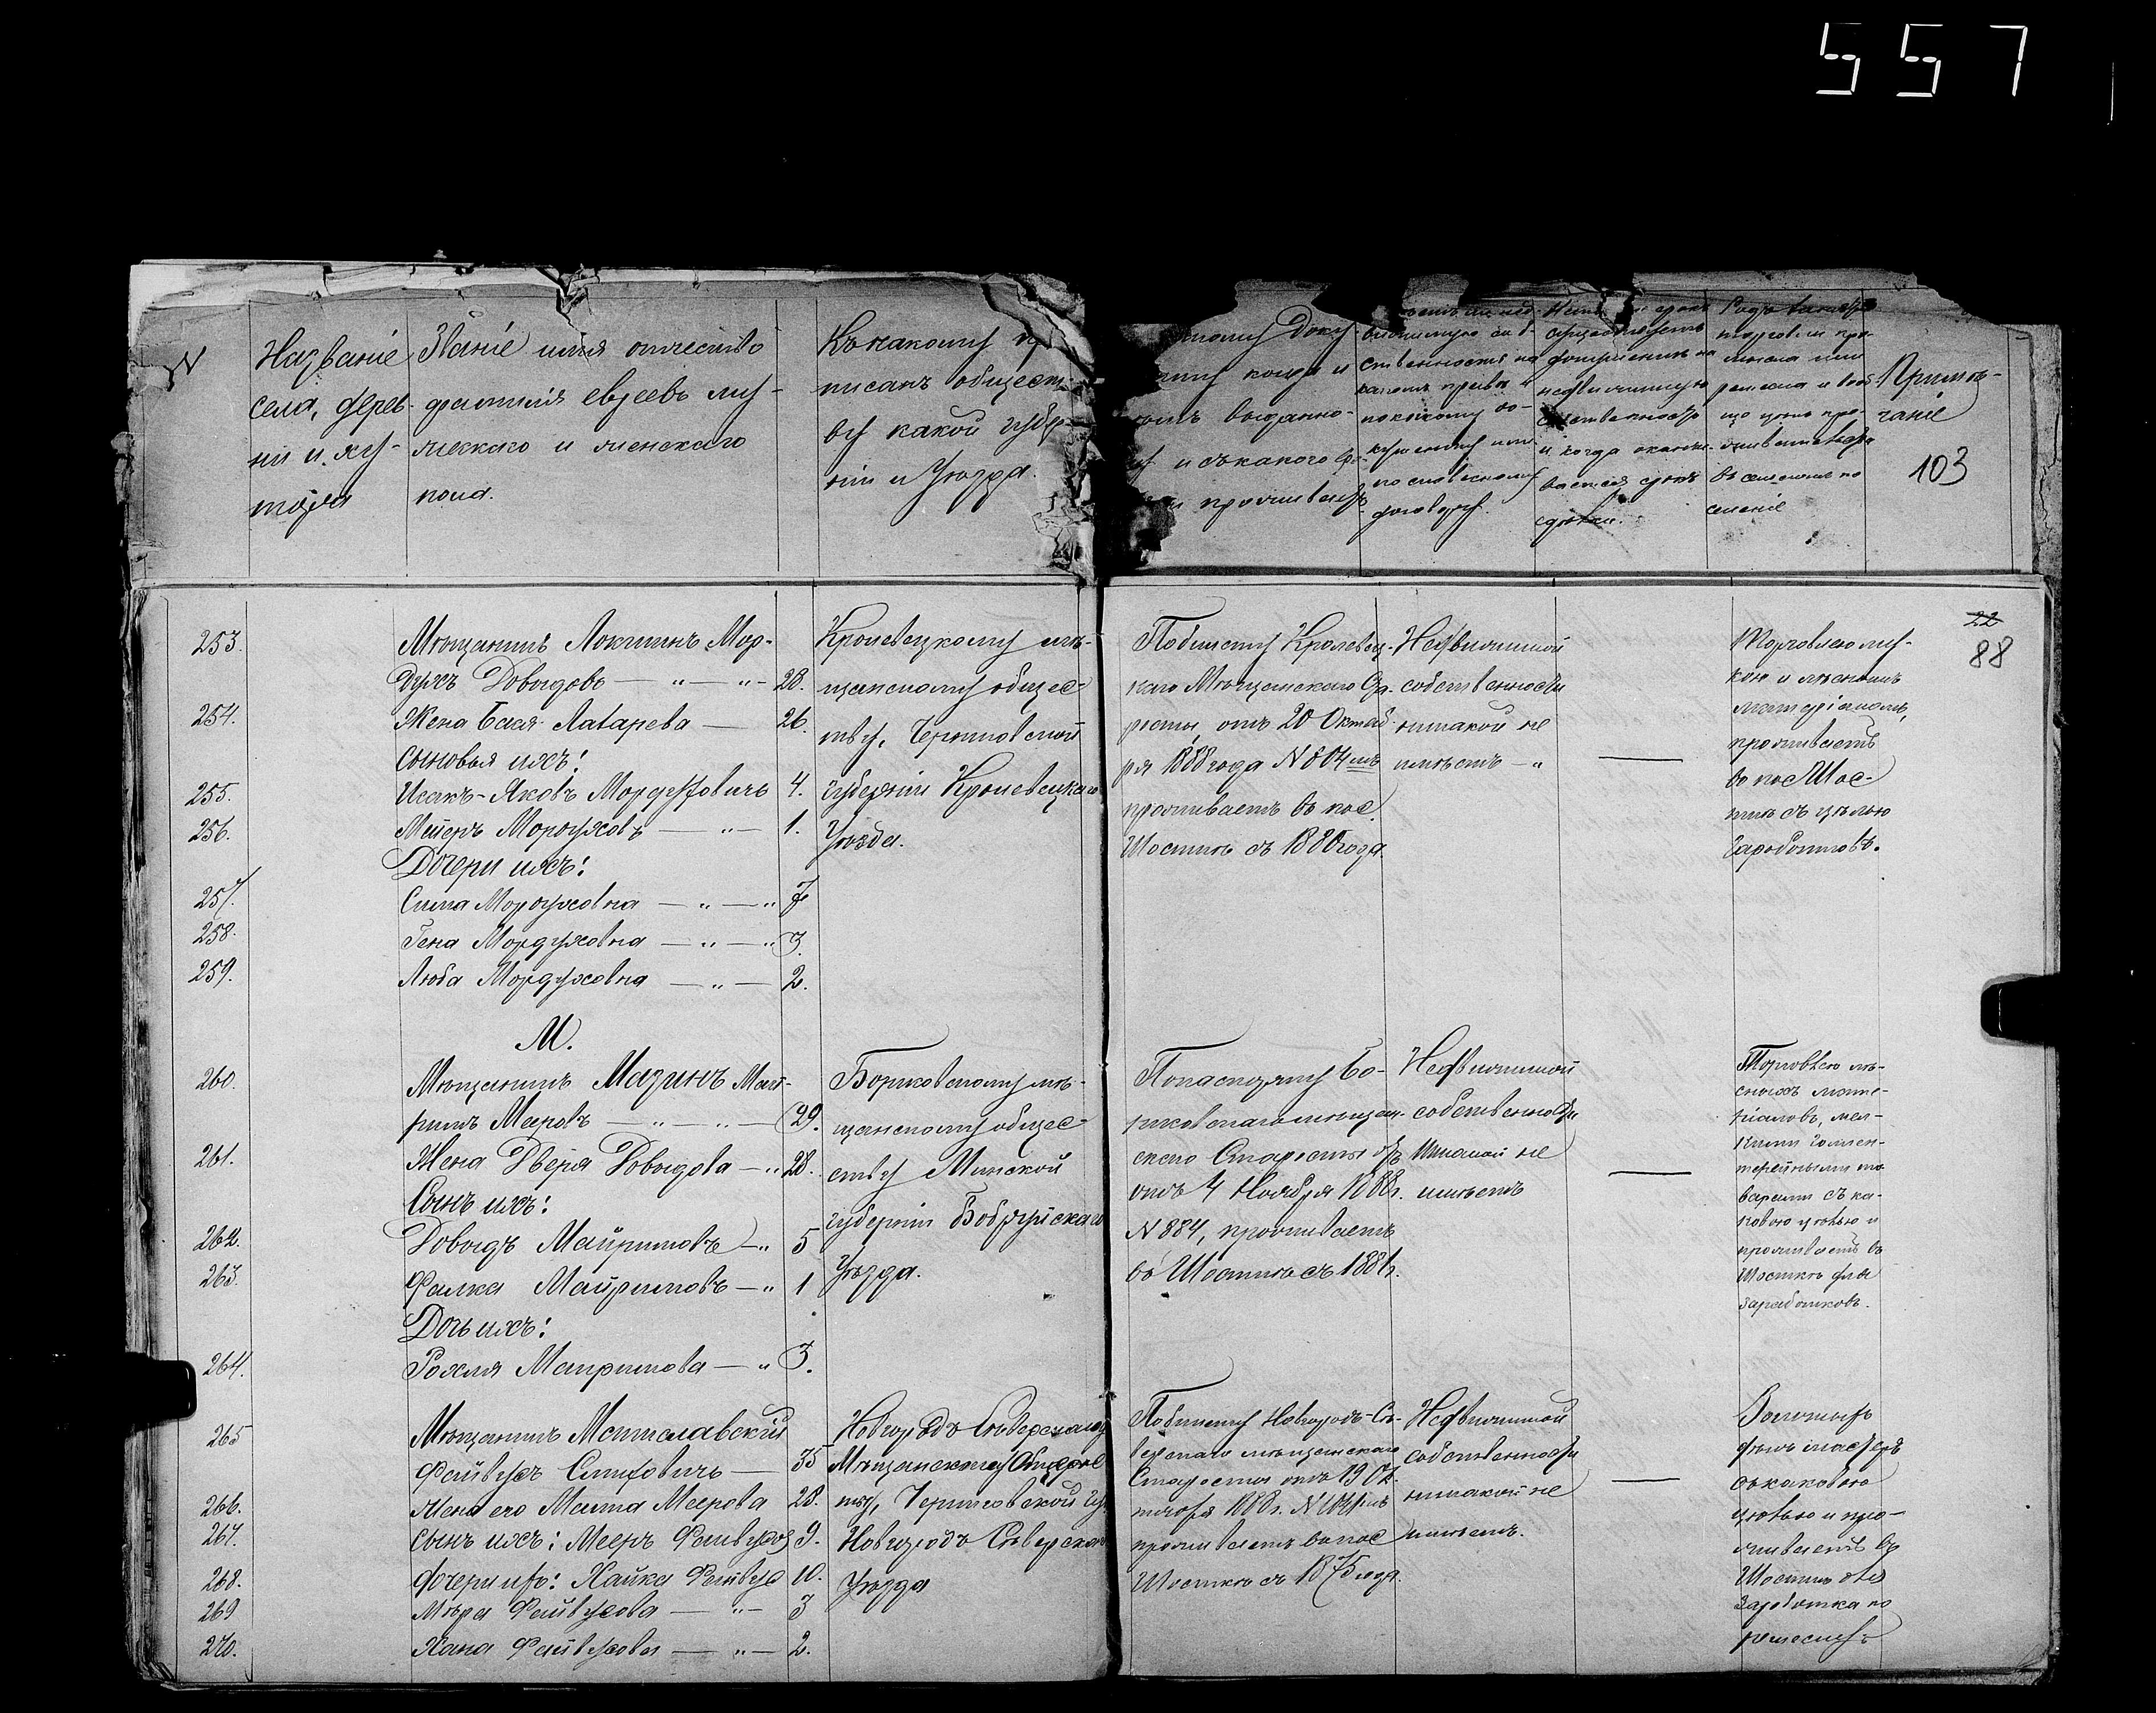 557
N
Названіе
села, дерев-
ни и ху-
тора
Званіе имя отчество
фамилія евреевъ муж-
ческаго и женскаго
пола.
Къ какому при-
писанъ общест-
ву какой губер-
ніи и Уѣзда.
доку-
когда и
выданно-
и съ какого вре-
проживаетъ
ственности на
какомъ правѣ и
по какому до-
кументу или
по словесному
договору.
документъ на
недвижимую
собственность
и когда оканчи-
вается срокъ
сдѣлки.
Родъ занятія
торговли про-
мысла или
ремесла и вооб-
ще цѣль про-
въ селеніи по
селеніе
Примѣ-
чаніе
103
22
88
253.
Мѣщанинъ Локшинъ Мор-
духъ Довидовъ — " — " — 28.
254.
Жена Бася Лазарева — 26.
Сыновья ихъ:
255.
Исакъ-Яковъ Мордуховичъ 4.
256.
Мееръ Мордуховъ — " — 1.
Дочери ихъ:
257.
Сима Мордуховна — " — " 7
258.
Гена Мордуховна — " — " 3.
259.
Люба Мордуховна — " — 2.
Кролевецкому мѣ-
щанскому общес-
тву, Черниговской
губерніи Кролевецкаго
Уѣзда.
По билету Кролевец-
каго Мѣщанскаго Ста-
росты, отъ 20 Октяб-
ря 1888 года N 804
проживаетъ въ пос.
Шосткѣ съ 1880 года.
Недвижимой
собственности
никакой не
имѣетъ — "
—
Торговлею му-
кою и лѣснымъ
матеріаломъ,
проживаетъ
въ пос Шос-
ткѣ съ цѣлью
Заработковъ.
М.
260.
Мѣщанинъ Мазинъ Май-
римъ Мееровъ — " — " — 29.
261.
Жена Двейра Довидова — " 28.
Сынъ ихъ:
262.
Довидъ Майримовъ — " 5
263.
Фалка Майримовъ — " 1
Дочь ихъ:
264.
Рохля Майримова — " 3.
мѣ-
щанскому общес-
тву Минской
губерніи Бобруйскаго
Уѣзда.
По паспорту
Старосты
отъ 4 Ноября 1888г.
N 884, проживаетъ
въ Шосткѣ съ 1881г.
Недвижимой
собственности
никакой не
имѣетъ
—
Торговлею лѣ-
сныхъ мате-
ріаловъ, мел-
кими галлан-
терейными то-
варами съ ка-
ковою цѣлью и
проживаетъ въ
Шосткѣ для
Заработковъ.
265
Мѣщанинъ Мстиславскій
Файвухъ 35
266.
Жена его Меита Меерова 28.
267.
Сынъ ихъ: Мееръ Файвухов 9.
268.
Дочери ихъ: Хайка Файвух 10.
269
Мѣра Файвухова — " — 3
270.
Хана Файвухова — " — 2.
Новгородъ Сѣверскому
Мѣщанскому Общес
тву, Черниговской Гу
Новгородъ Сѣверскаго
Уѣзда
По билету Новгородъ-Сѣ-
верскаго мѣщанскаго
Старосты отъ 19 Ок-
тября 1888г.
проживаетъ въ пос
Шосткѣ съ 1875 года.
Недвижимой
собственности
никакой не
имѣетъ.
—
мастеръ
съ каковою
цѣлью и про-
живаетъ въ
Шосткѣ для
Заработка по
ремеслу